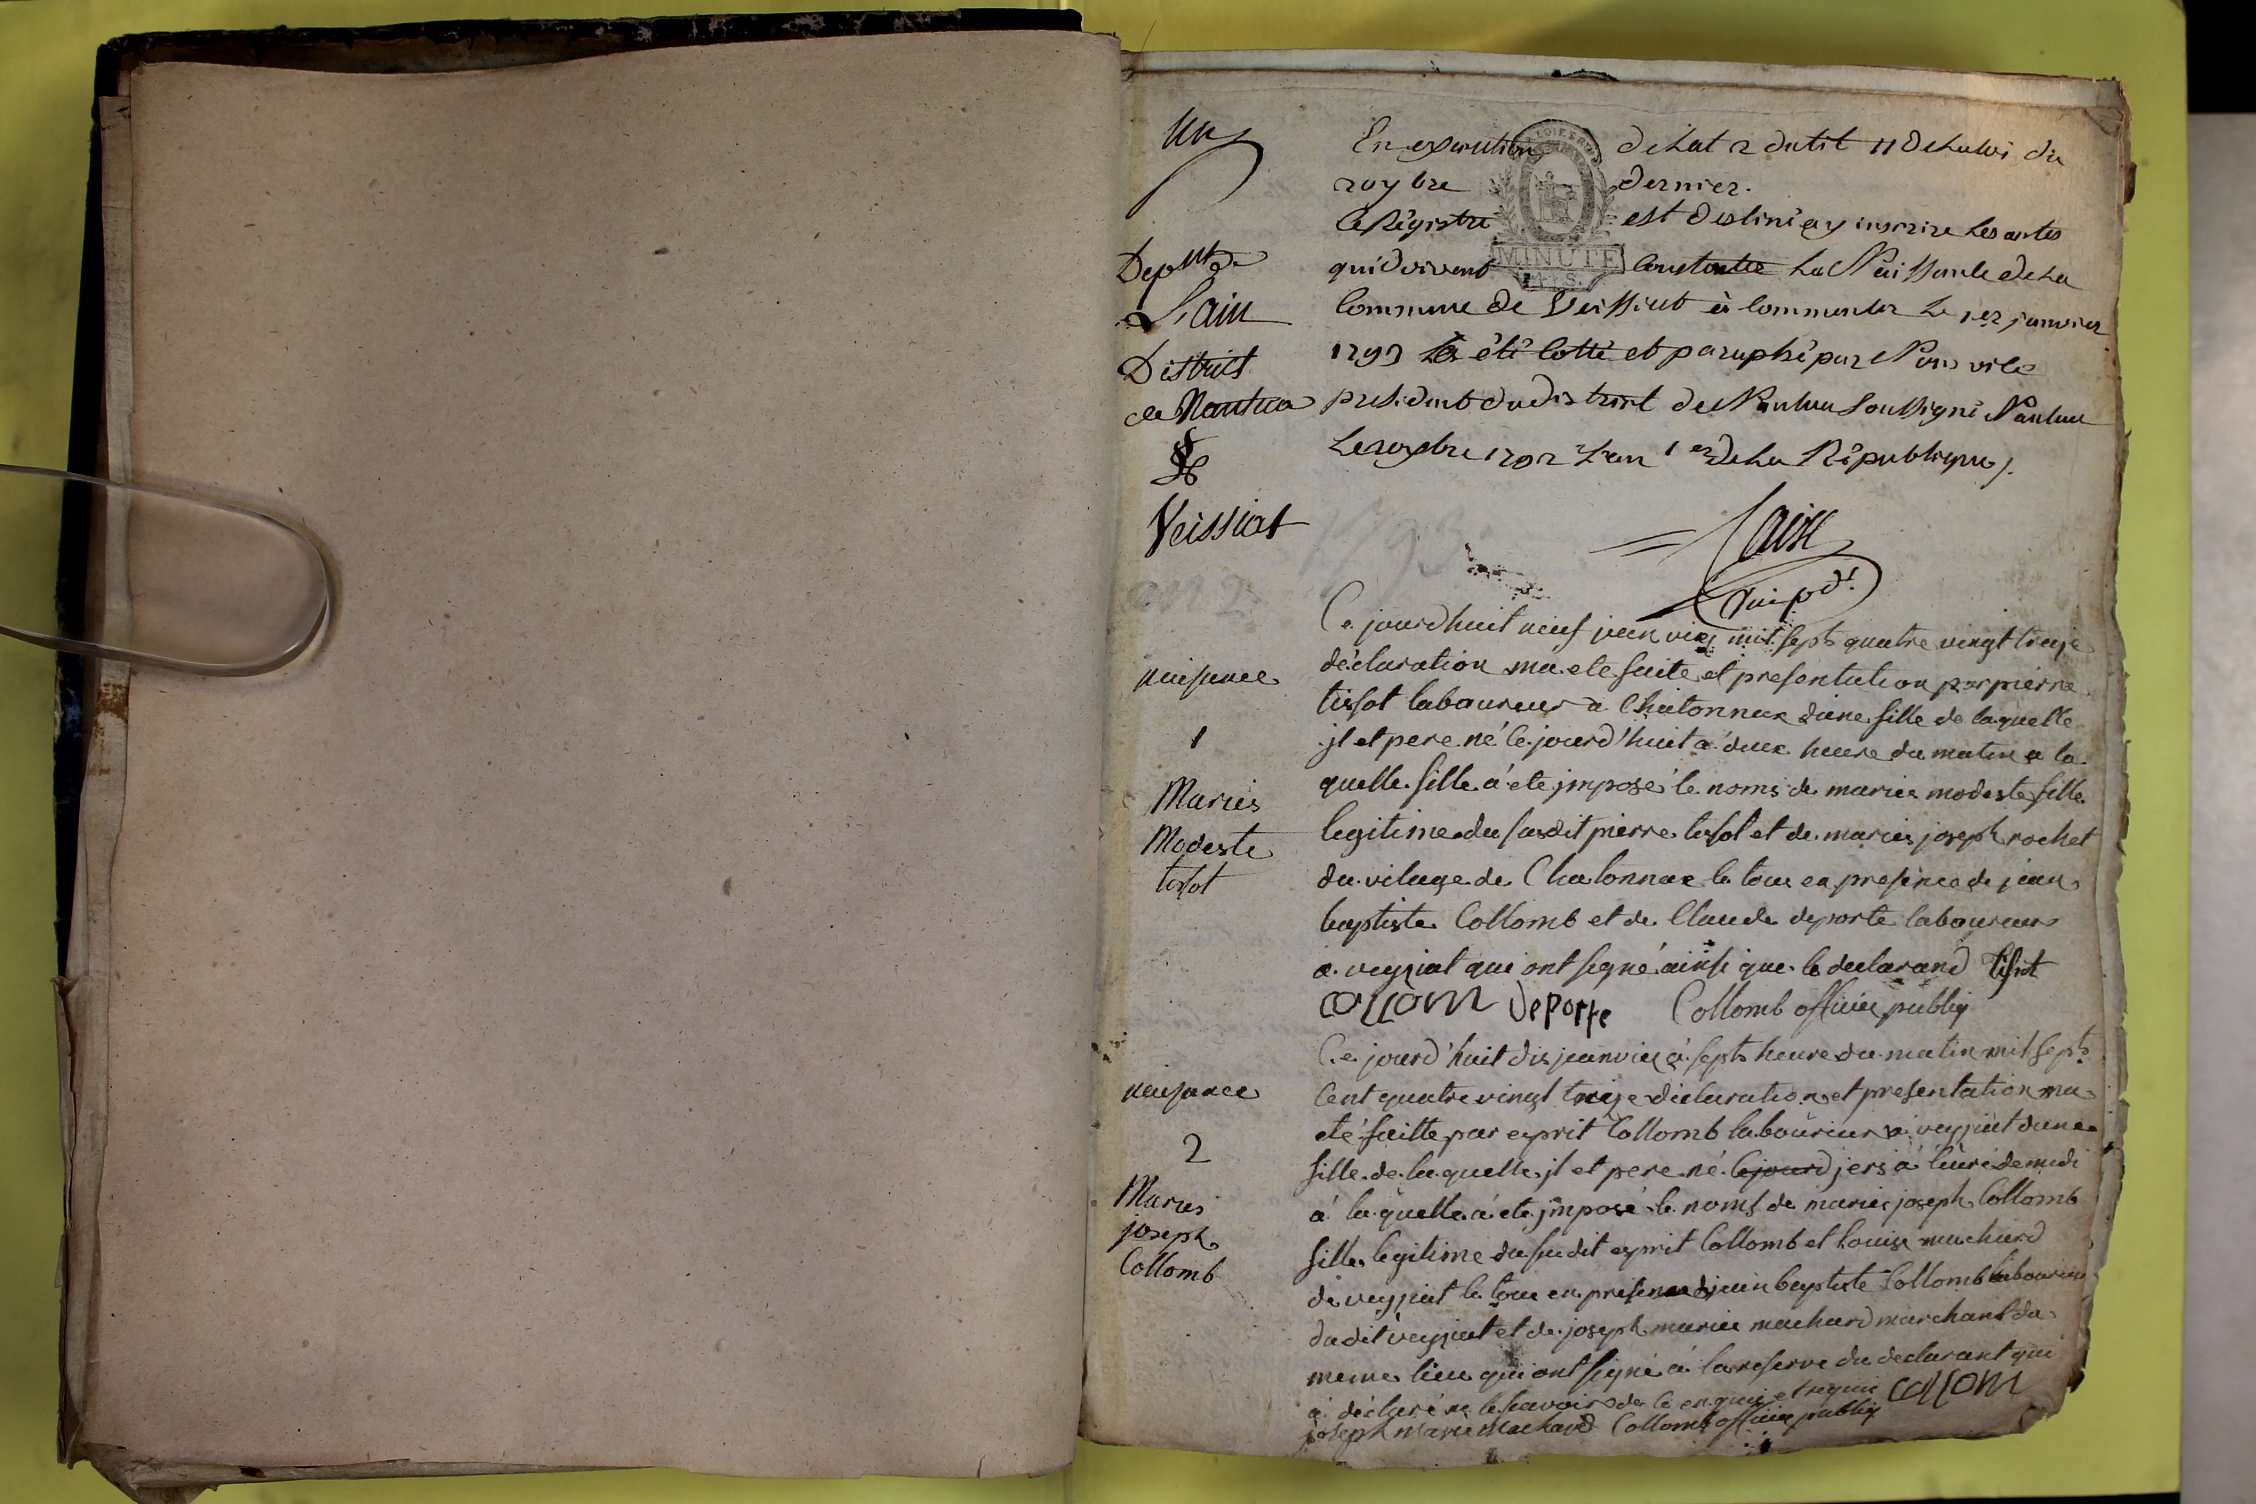 un
En execution de Lart 2 du tit 11 de La Loi du
20 7bre dernier.
Ce Régistre est destiné a y inscrire Les actes
Depmt de
qui doivent Constater La Naissance de La
L'ain
Commune de Veissiat à Commencer Le 1er janvier
District
1793 Lea été Cotté et paraphé par Nous vice
de Nantua
president du district de Nantua Soussigné Nantua
Le 10 xbre 1792 L'an 1er de La République /.
Veissiat
1793
an 2
vice pdt.
MINUTE
Ce jourdhuit neuf jeanvier mil sept quatre vingt treize
naisance
déclaration ma ete faite et presentation par pierre
tissot laboureur a Chatonnax dune fille de laquelle
1
jl et pere né ce jourd'huit a deux heure du matin a la
quelle fille a ete jmposé le noms de marie modeste fille
Marie
Modeste
tissot
legitime du susdit pierre tissot et de marie joseph rochet
du vilage de Chatonnax le tous en presence de jean
baptiste Collomb et de Claude deporte laboureur
a veyziat qui ont signé ainsi que le declarand tissot
COLLOM DePorte Collomb officier publiq
Ce jourd'huit dix jeanvier a sept heure du matin mil sept
naisance
Cent quatre vingt treize declaration et presentation ma
eté faitte par esprit Collomb laboureur a veyziat dune
2
fille de la quelle jl et pere né ce jourd jers a l'eure de midi
Marie
joseph
Collomb
a la quelle a ete jmposé le noms de marie joseph Collomb
fille legitime du sudit esprit Collomb et Louise machard
de veyziat le tous en presence de jean baptiste Collomb laboureur
dudit veyziat et de joseph marie machard marchant du
meme lieu qui ont signé a la reserve du declarant qui
a déclaré ne le savoir de ce enquis et requis COLLOM
joseph marie machard Collomb officier publiq